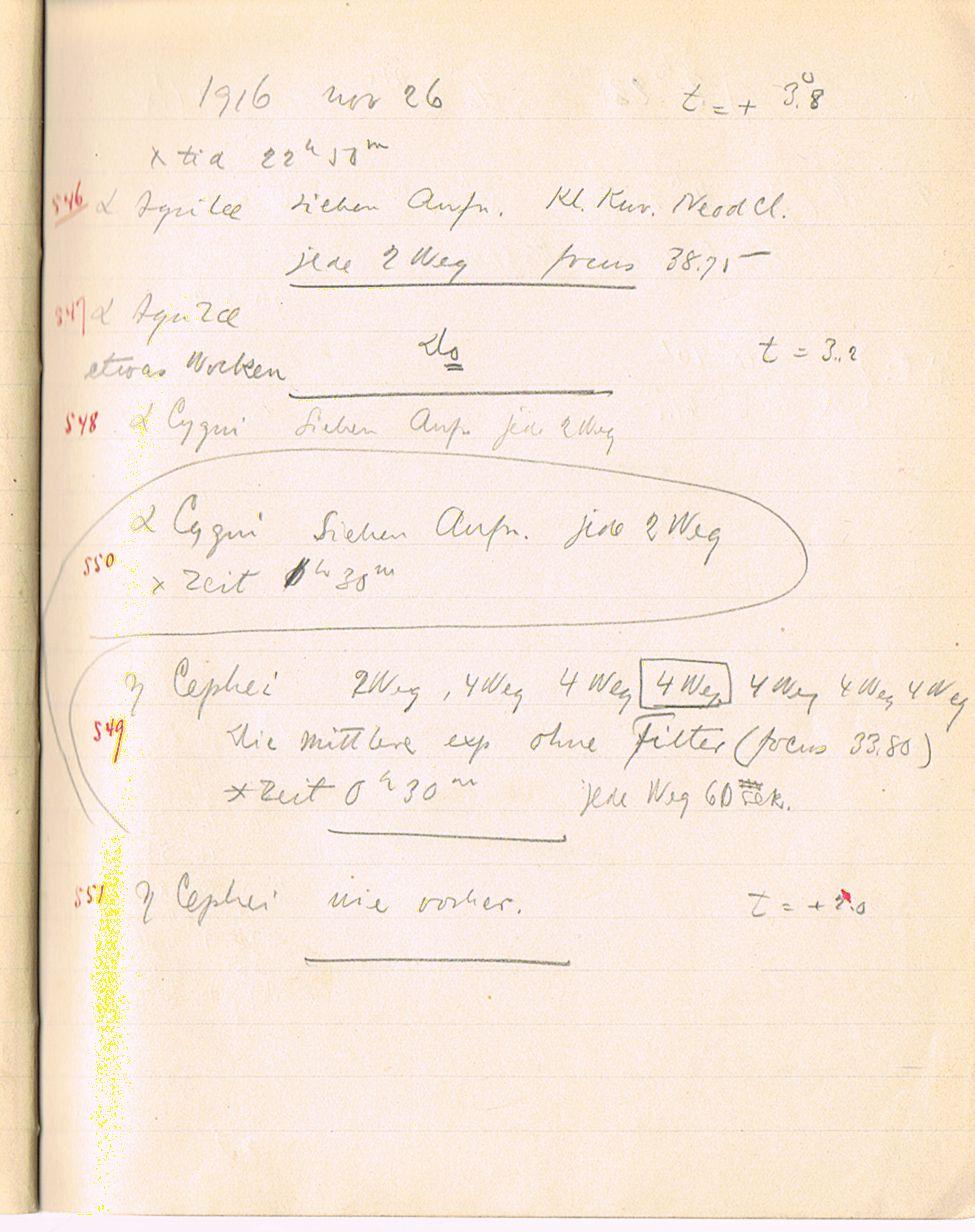 1916 nov 26 t = + 3°.8
× tid 22h 50m
546 α Aquilae Sieben Aufn. Kl. Kuv. Neod Cl.
jede 2 Weg focus 38.75
547 α Aquilae
etwas Wolken Do t = 3.2
548 α Cygni Sieben Aufn. jede 2 Weg
α Cygni Sieben Aufn. jede 2 Weg
550
× Zeit h 30m
η Cephei 2 Weg, 4 Weg 4 Weg 4 Weg 4 Weg 4 Weg 4 Weg
549 Die mittlere exp ohne Filter (focus 33.80)
× Zeit 0h 30m jede Weg 60 sek.
551 η Cephei wie vorher. t = + .0